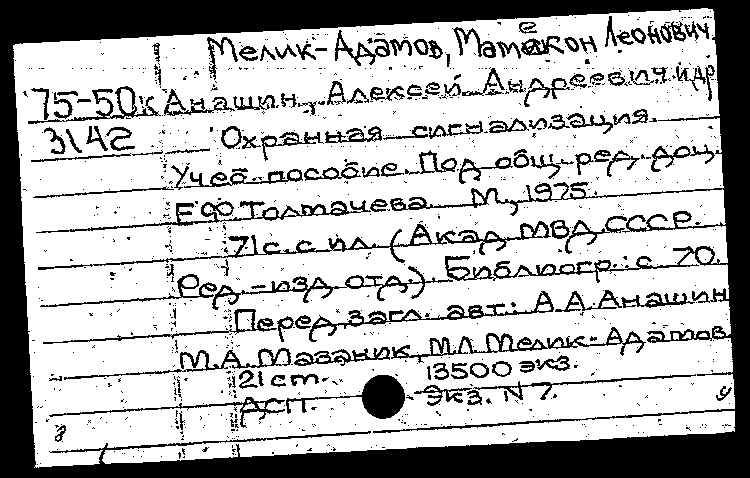 Мелик-Адамов, Мамекон Леонович.
75-50к Анашин, Алексей Андреевич и др
3142 Охранная сигнализация.
Учеб. пособие. Под общ. ред. доц.
Е Ф Толмачева. М., 1975.
71 с. с ил. (Акад. МВД СССР.
Ред.-изд. отд.). Библиогр.: с. 70.
Перед загл. авт.: А.А. Анашин
М.А. Мазаник, М.Л. Мелик-Адамов.
21 cm. 13500 экз.
ДСП. Экз. N 7.